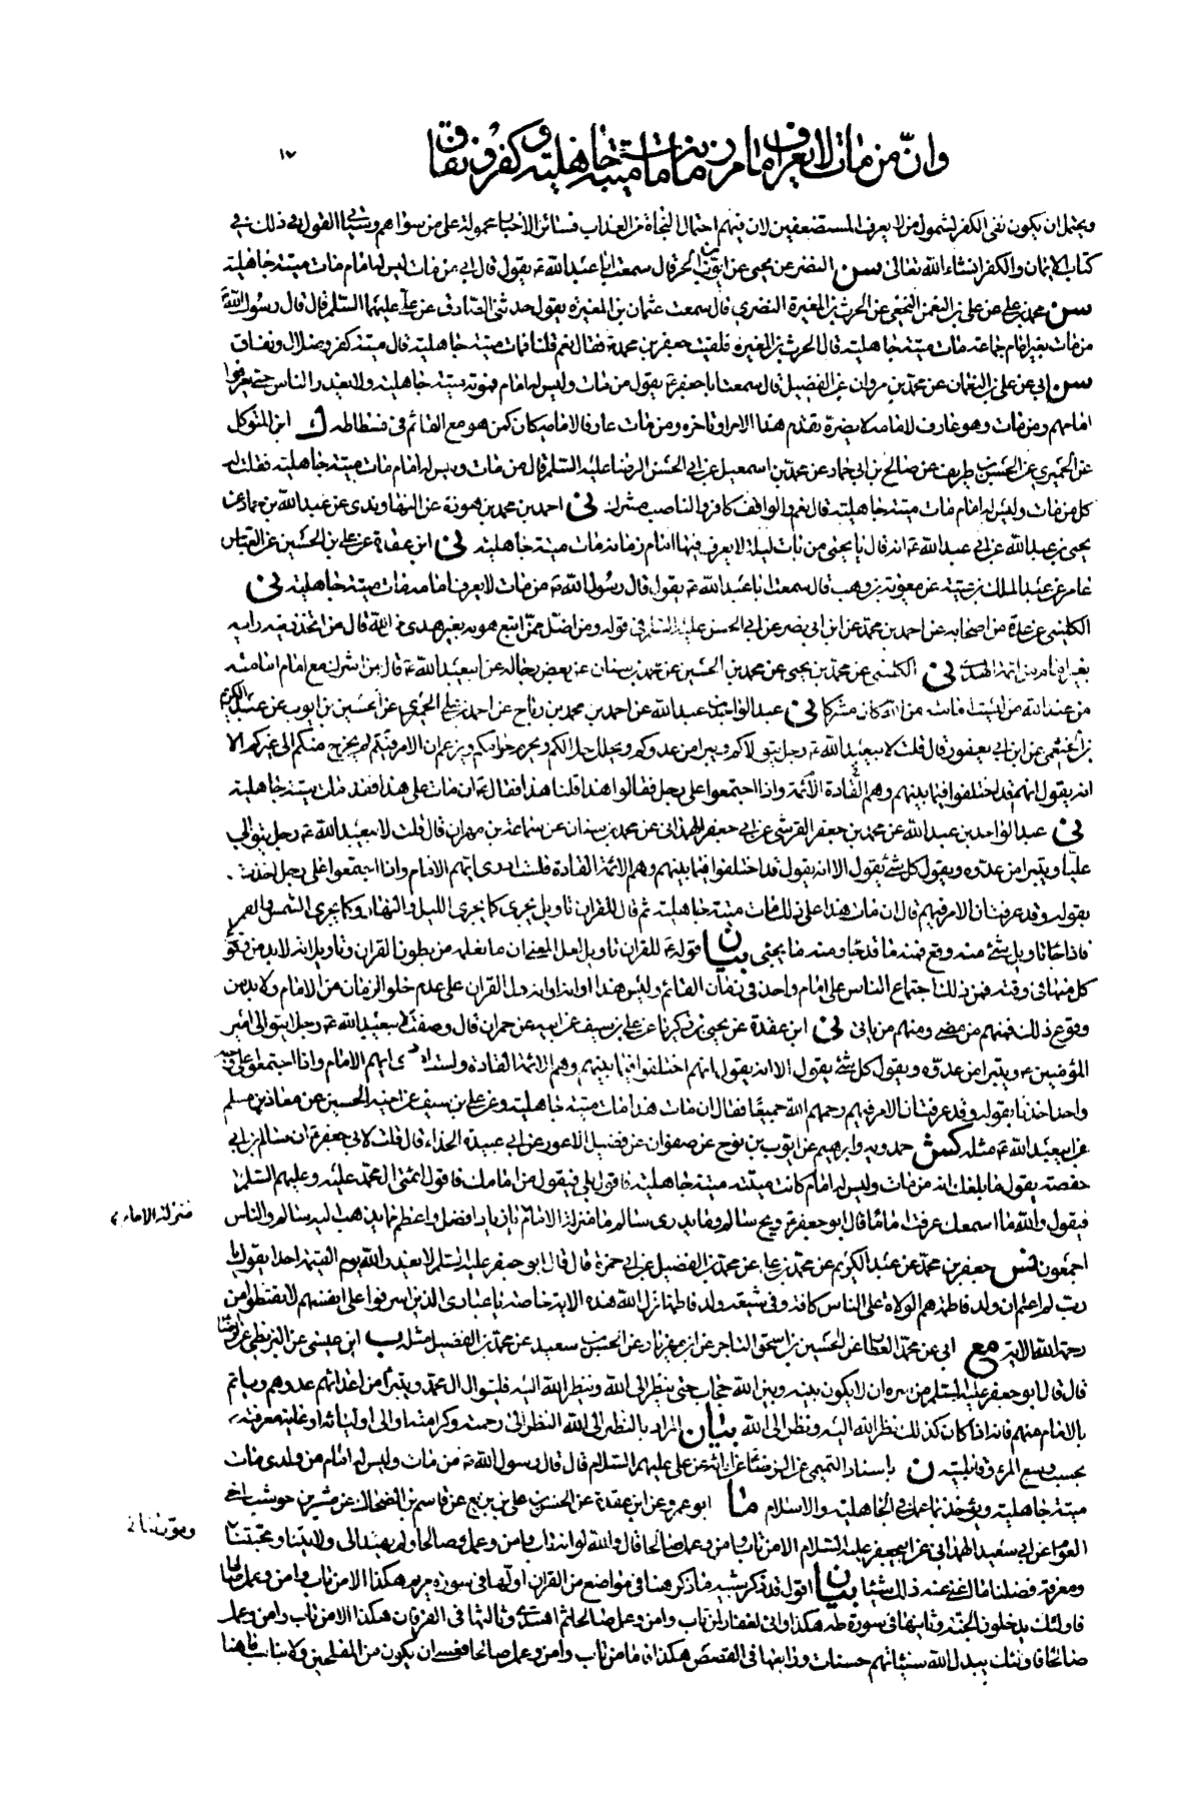 وانّ من مات لا يعرف امامه او شك فيه مات ميتة جاهلية وكفر ونفاق
١٧
ويحتمل ان يكون نفى الكفر لشموله من لا يعرف المستضعفين لان فيهم احتمال النجاة من العذاب فسائر الاخبار محمولة على من سواهم وسيأتى القول فى ذلك فى
كتاب الايمان والكفر انشاء الله تعالى سن النضر عن يحيى عن ايوب بن الحر قال سمعت ابا عبدالله ع يقول قال ابى من مات ليس له امام مات ميتة جاهلية
سن محمد بن على عن على بن النعمن النخعى عن الحرث بن المغيرة النضرى قال سمعت عثمان بن المغيرة يقول حدثنى الصادق عن على عليهما السلم قال قال رسول الله
من مات بغير امام جماعة مات ميتة جاهلية قال الحرث بن المغيرة فلقيت جعفر بن محمد ع فقال نعم قلنا فمات ميتة جاهلية قال ميتة كفر وضلال ونفاق
سن ابى عن على بن النعمان عن محمد بن مروان عن الفضيل قال سمعت ابا جعفر ع يقول من مات وليس له امام فموته ميتة جاهلية ولا يعذر الناس حتى يعرفوا
امامهم ومن مات وهو عارف لامامه لا يضره تقدم هذا الامر او تاخره ومن مات عارفا لامامه كان كمن هو مع القائم فى فسطاطه ك ابن المتوكل
عن الحميرى عن الحسن بن طريف عن صالح بن ابى حماد عن محمد بن اسمعيل عن ابى الحسن الرضا عليه السلم قال من مات وليس له امام مات ميتة جاهلية فقلت له
كل من مات وليس له امام مات ميتة جاهلية قال نعم والواقف كافر والناصب مشرك نى احمد بن محمد بن هوذة عن النهاوندى عن عبدالله بن حماد عن
يحيى بن عبدالله عن ابى عبدالله ع انه قال يا يحيى من بات ليلة لا يعرف فيها امام زمانه مات ميتة جاهلية نى ابن عقدة عن على بن الحسين عن العباس
عامر عن عبد الملك بن عتبة عن معوية بن وهب قال سمعت ابا عبدالله ع يقول قال رسول الله ص من مات لا يعرف امامه مات ميتة جاهلية نى
الكلينى عن عدة من اصحابه عن احمد بن محمد عن ابن ابى نصر عن ابى الحسن عليه السلم فى قوله ومن اضل ممن اتبع هويه بغير هدى من الله قال من اتخذ دينه رايه
بغير امام من ائمة الهدى نى الكلينى عن محمد بن يحيى عن محمد بن الحسين عن محمد بن سنان عن بعض رجاله عن ابيعبدالله ع قال من اشرك مع امام امامته
من عند الله من ليست امامته من الله كان مشركا نى عبدالواحد بن عبدالله عن احمد بن محمد بن رباح عن احمد بن على الحميرى عن الحسين بن ايوب عن عبد الكريم
بن الخثعمى عن ابن ابى يعفور قال قلت لابيعبدالله ع رجل يتولاكم ويبرأ من عدوكم ويحلل حلالكم ويحرم حرامكم ويزعم ان الامر فيكم لم يخرج منكم الى غيركم الا
انه يقول انهم قد اختلفوا فيما بينهم وهم الائمة القادة واذا اجتمعوا على رجل فقالوا هذا قلنا هذا فقال ع ان مات على هذا فقد مات ميتة جاهلية
نى عبد الواحد بن عبدالله عن محمد بن جعفر القرشى عن ابى جعفر الهمدانى عن محمد بن سنان عن سماعة بن مهران قال قلت لابيعبدالله ع رجل يتوالى
عليا ويتبرا من عدوه ويقول كل شئ يقول الا انه يقول قد اختلفوا فيما بينهم وهم الائمة القادة فلست ادرى ايهم الامام واذا اجتمعوا على رجل اخذت
بقوله وقد عرفت ان الامر فيهم قال ان مات هذا على ذلك مات ميتة جاهلية ثم قال للقران تاويل يجرى كما يجرى الليل والنهار وكما يجرى الشمس والقمر
فاذا جاء تاويل شئ منه وقع فمنه ما قد جاء ومنه ما يجئ بيان قوله ع للقران تاويل لعل المعنى ان ما نعلمه من بطون القران وتاويلاته لا بد من وقوع
كل منها فى وقته فمن ذلك اجتماع الناس على امام واحد فى زمان القائم وليس هذا اوانه او انه دل القران على عدم خلو الزمان من الامام ولا بد من
وقوع ذلك فمنهم من مضى ومنهم من ياتى نى ابن عقدة عن يحيى بن زكريا عن على بن سيف عن ابيه عن حمران قال وصفت لابيعبدالله ع رجلا يتوالى امير
المؤمنين ع ويتبرا من عدوه ويقول كل شئ يقول الا انه يقول انهم اختلفوا فيما بينهم وهم الائمة القادة ولست ادرى ايهم الامام واذا اجتمعوا على وجه
واحد اخذنا بقوله وقد عرفت ان الامر فيهم رحمهم الله جميعا فقال ان مات هذا مات ميتة جاهلية وعن على بن سيف عن اخيه الحسين عن معاذ بن مسلم
عن ابيعبدالله ع مثله كش حمدويه وابرهيم عن ايوب بن نوح عن صفوان عن فضيل الاعور عن ابى عبيدة الحذاء قال قلت لابى جعفر ع ان سالم بن ابى
حفصة يقول ما بلغك انه من مات وليس له امام كانت ميتته ميتة جاهلية فاقول بلى فيقول من امامك فاقول ائمتى ال محمد عليه وعليهم السلم
فيقول والله ما اسمعك عرفت اماما قال ابو جعفر ع ويح سالم وما يدرى سالم ما منزلة الامام منزلة الامام يا زياد افضل واعظم مما يذهب اليه سالم والناس
اجمعون فس جعفر بن محمد عن عبد الكريم عن محمد بن على عن محمد بن الفضيل عن ابى حمزة قال قال ابو جعفر عليه السلم لا يعذر الله يوم القيمة احدا يقول يا
رب لم اعلم ان ولد فاطمة هم الولاة على الناس كافة وفى شيعة ولد فاطمة انزل الله هذه الاية خاصة يا عبادى الذين اسرفوا على انفسهم لا تقنطوا من
رحمة الله الاية مع ابى عن محمد العطار عن الحسين بن اسحق التاجر عن ابن مهزيار عن الحسن بن سعيد عن محمد بن الفضيل مثله ب ابن عيسى عن البزنطى عن الرضا
قال قال ابو جعفر عليه السلم من سره ان لا يكون بينه وبين الله حجاب حتى ينظر الى الله وينظر الله اليه فليتوال ال محمد ويتبرأ من اعدائهم عدوهم وياتم
بالامام منهم فانه اذا كان كذلك نظر الله اليه ونظر الى الله بيان المراد بالنظر الى الله النظر الى رحمته وكرامته او الى اوليائه او غاية معرفته
بحسب وسع المرء وقابليته ن باسناد التميمى عن الرضا عن ابائه عن على عليهم السلام قال قال رسول الله ص من مات وليس له امام من ولدى مات
ميتة جاهلية ويؤخذ بما عمل فى الجاهلية والاسلام ما ابو عمرو عن ابن عقدة عن الحسن بن على بن بزيع عن قاسم بن الضحاك عن شهر بن حوشب اخى
العوام عن ابى سعيد الهمدانى عن ابيجعفر عليه السلام الا من تاب وامن وعمل صالحا قال والله لو انه تاب وامن وعمل صالحا ولم يهتد الى ولايتنا ومحبتنا
ومعرفة فضلنا ما اغنى عنه ذلك شيئا بيان اقول قد ذكر شبيه ما ذكر هنا فى مواضع من القران اولها فى سورة مريم هكذا الا من تاب وامن وعمل صالحا
فاولئك يدخلون الجنة وثانيها فى سورة طه هكذا وانى لغفار لمن تاب وامن وعمل صالحا ثم اهتدى وثالثها فى الفرقان هكذا الا من تاب وامن وعمل
صالحا فاولئك يبدل الله سيئاتهم حسنات ورابعها فى القصص هكذا فاما من تاب وامن وعمل صالحا فعسى ان يكون من المفلحين ولا يناسب ما هنا
منزلة الامام
ومودتنا